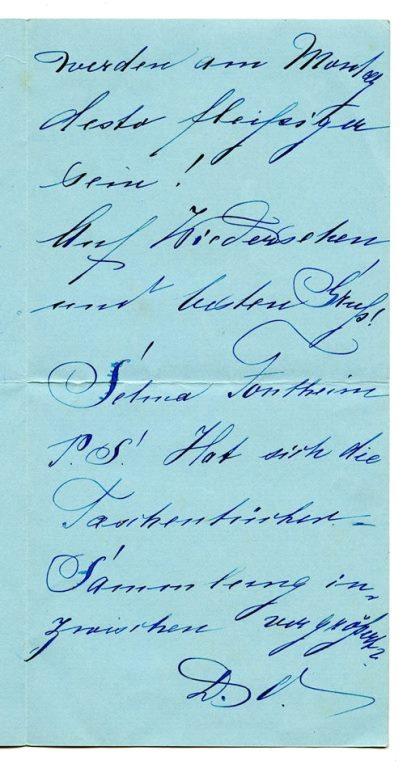 werden am Montag
desto fleißiger
sein!
Auf Wiedersehen
und besten Gruß!
Selma Fontheim
P.S. Hat sich die
Taschentücher-
Sammlung in-
zwischen vergrößert?
D. O.